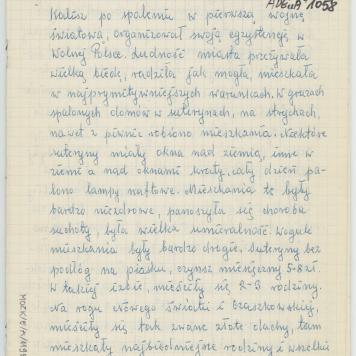 ADGuA 1058
Kalisz po spaleniu w pierwszą wojnę
światową, organizował swoją egzystencję w
Wolnej Polsce. Ludność miasta przeżywała
wielką biedę, radziła jak mogła, mieszkała
w najprymitywniejszych warunkach. W gruzach
spalonych domów w suterynach, na strychach,
nawet z piwnic robiono mieszkania. Niektóre
suteryny miały okna nad ziemią, inne w
ziemi a nad oknami kraty, cały dzień pa-
lono lampy naftowe. Mieszkania te były
bardzo niezdrowe, panoszyła się choroba
suchoty, była wielka umieralność. Wogule
mieszkania były bardzo drogie. Suteryny bez
podłóg na piasku, czynsz miesięczny 5-8 zł.
w takiej izbie, mieściły się 2-3 rodziny.
Na rogu Nowego Światu i Czaszkowskiej,
mieściły się tak zwane złote dachy, tam
mieszkały najbiedniejsze rodziny i wszelki